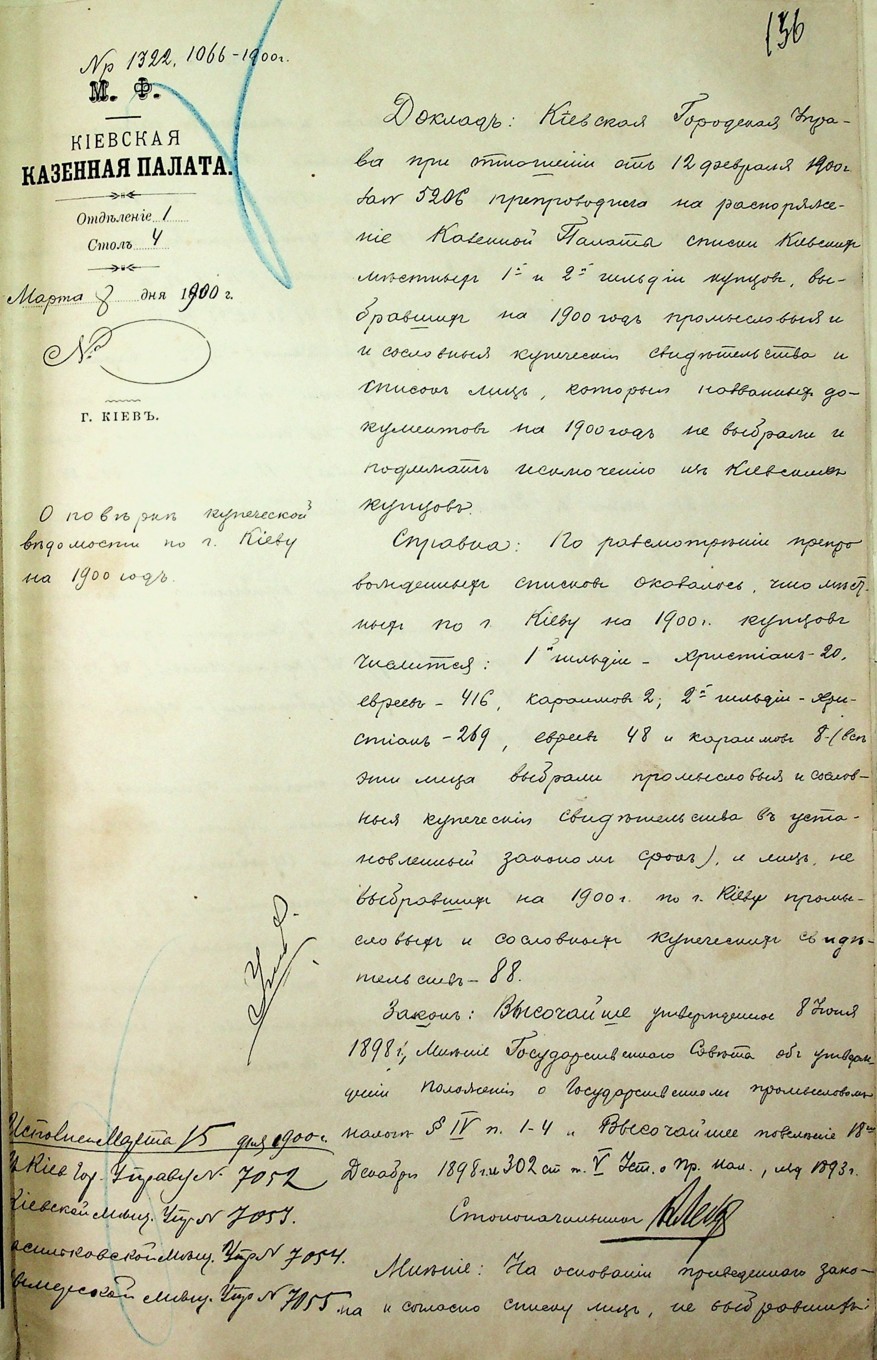 136
Nр 1322, 1066-1900г.
М. Ф.
КІЕВСКАЯ
КАЗЕННАЯ ПАЛАТА.
Отдѣленіе 1
Столъ 4
Марта 8 дня 1900 г.
№
Г. КІЕВЪ.
О повѣркѣ купеческой
вѣдомости по г. Кіеву
на 1900 годъ.
Докладъ: Кіевская Городская Упра-
ва при отношеніи отъ 12 февраля 1900г
за № 5206 препроводила на распоряже-
ніе Казенной Палаты списки Кіевскихъ
мѣстныхъ 1й и 2й гильдіи купцовъ, вы-
бравшихъ на 1900 годъ промысловыя и
и сословныя купеческія свидѣтельства и
списокъ лицъ, которыя названныхъ до-
кументовъ на 1900 годъ не выбрали и
подлежатъ исключенію изъ Кіевскихъ
купцовъ.
Справка: По разсмотрѣніи препро
вожденныхъ списковъ оказалось, что мѣст-
ныхъ по г. Кіеву на 1900 г. купцовъ
числится: 1й гильдіи - христіанъ - 20,
евреевъ - 416, караимовъ 2; 2й гильдіи - хри-
стіанъ - 269, евреевъ 48 и караимовъ 8 - (всѣ
эти лица выбрали промысловыя и сослов-
ныя купеческія свидѣтельства въ уста-
новленный закономъ срокъ), и лицъ, не
выбравшихъ на 1900 г. по г. Кіеву промы-
словыхъ и сословныхъ купеческихъ свидѣ-
тельствъ - 88.
Законъ: Высочайше утвержденное 8 Іюня
1898 г., Мнѣніе Государственнаго Совѣта объ утверж-
деніи Положенія о Государственномъ промысловомъ
налогѣ § IV п. 1-4 и Высочайшее повелѣніе 18го
Декабря 1898 г. и 302 ст. т. V Уст. о пр. нал., изд 1893 г.
Столоначальникъ
Мнѣніе: На основаніи приведеннаго зако-
на и согласно списку лицъ, не выбравшихъ
Исполнено Марта 15 дня 1900 г.
Кіев Гор. Управу № 7052
Кіевской мѣщ. Упр № 7053.
Васильковской мѣщ. Упр № 7054.
мѣщ. Упр № 7055.